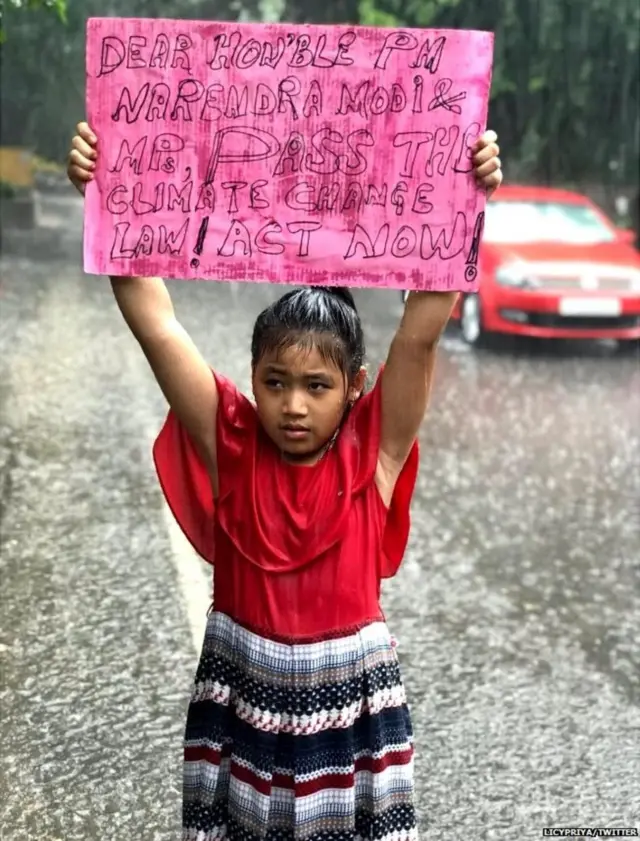 DEAR HON'BLE PM
NARENDRA MODI &
MPs, PASS THE
CLIMATE CHANGE
LAW! ACT NOW!
LICYPRIYA/TWITTER